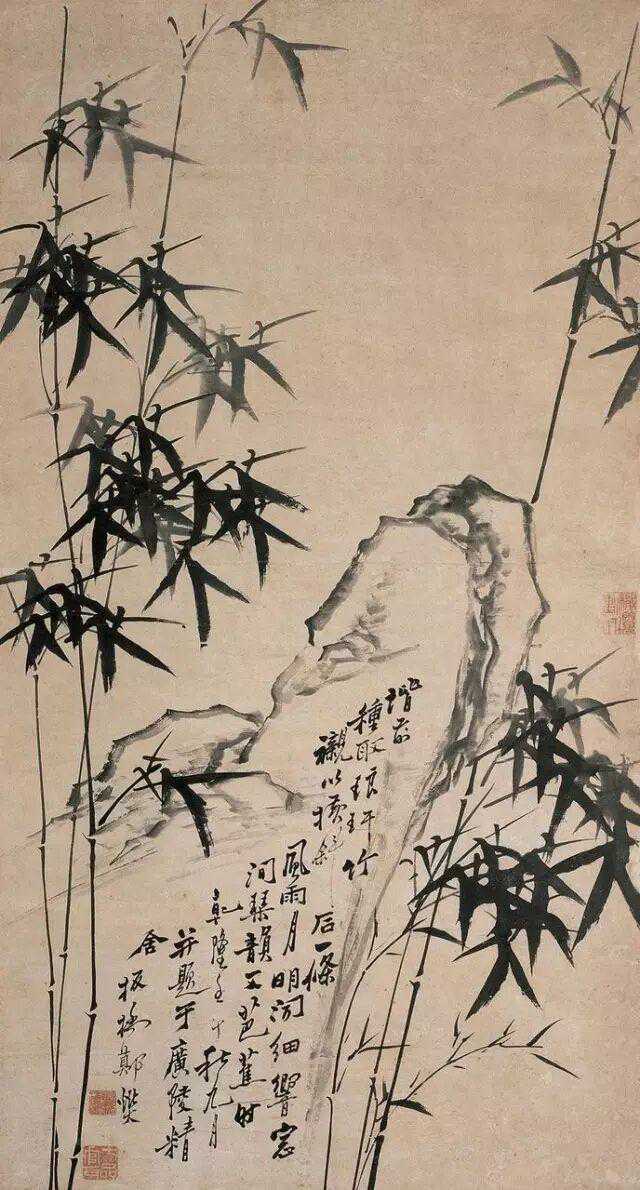 堦前
種取琅玕竹
襯以橫斜石一條
風雨月明聞細響窓
間琴韻下芭蕉时
乾隆壬午秋九月
并題于廣陵精
舍板橋鄭燮